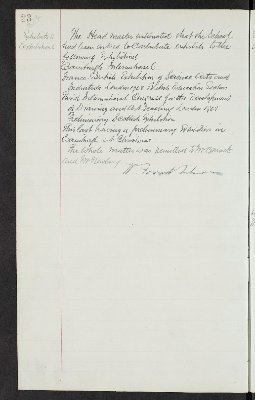 The Head master intimated that the School
had been invited to contribute exhibits to the
following Exhibitions
Edinburgh International
Franco British Exhibition of Science Arts and
Industries London 1908. British Education Section
Third International Congress for the Development
of Drawing and Art Teaching London 1908
Preliminary Scottish Exhibition
This last having a preliminary Exhibition in
Edinburgh
The whole matter was remitted to Mr
and Mr Newbery